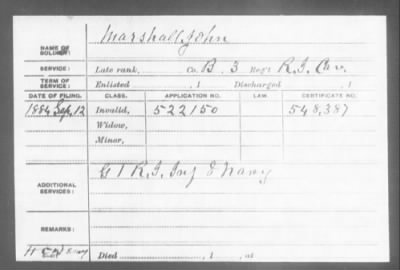 NAME OF SOLDIER: Marshall, John
SERVICE: Late rank, Co. B. 3 Reg't R.I. Cav.
TERM OF SERVICE: Enlisted , 1 Discharged , 1
DATE OF FILING. CLASS. APPLICATION NO. LAW. CERTIFICATE NO.
1884 Sep. 12 Invalid, 522150 548,387
Widow,
Minor,
ADDITIONAL SERVICES: G 1 R.I. Inf & Navy
REMARKS:
Died , 1 , at